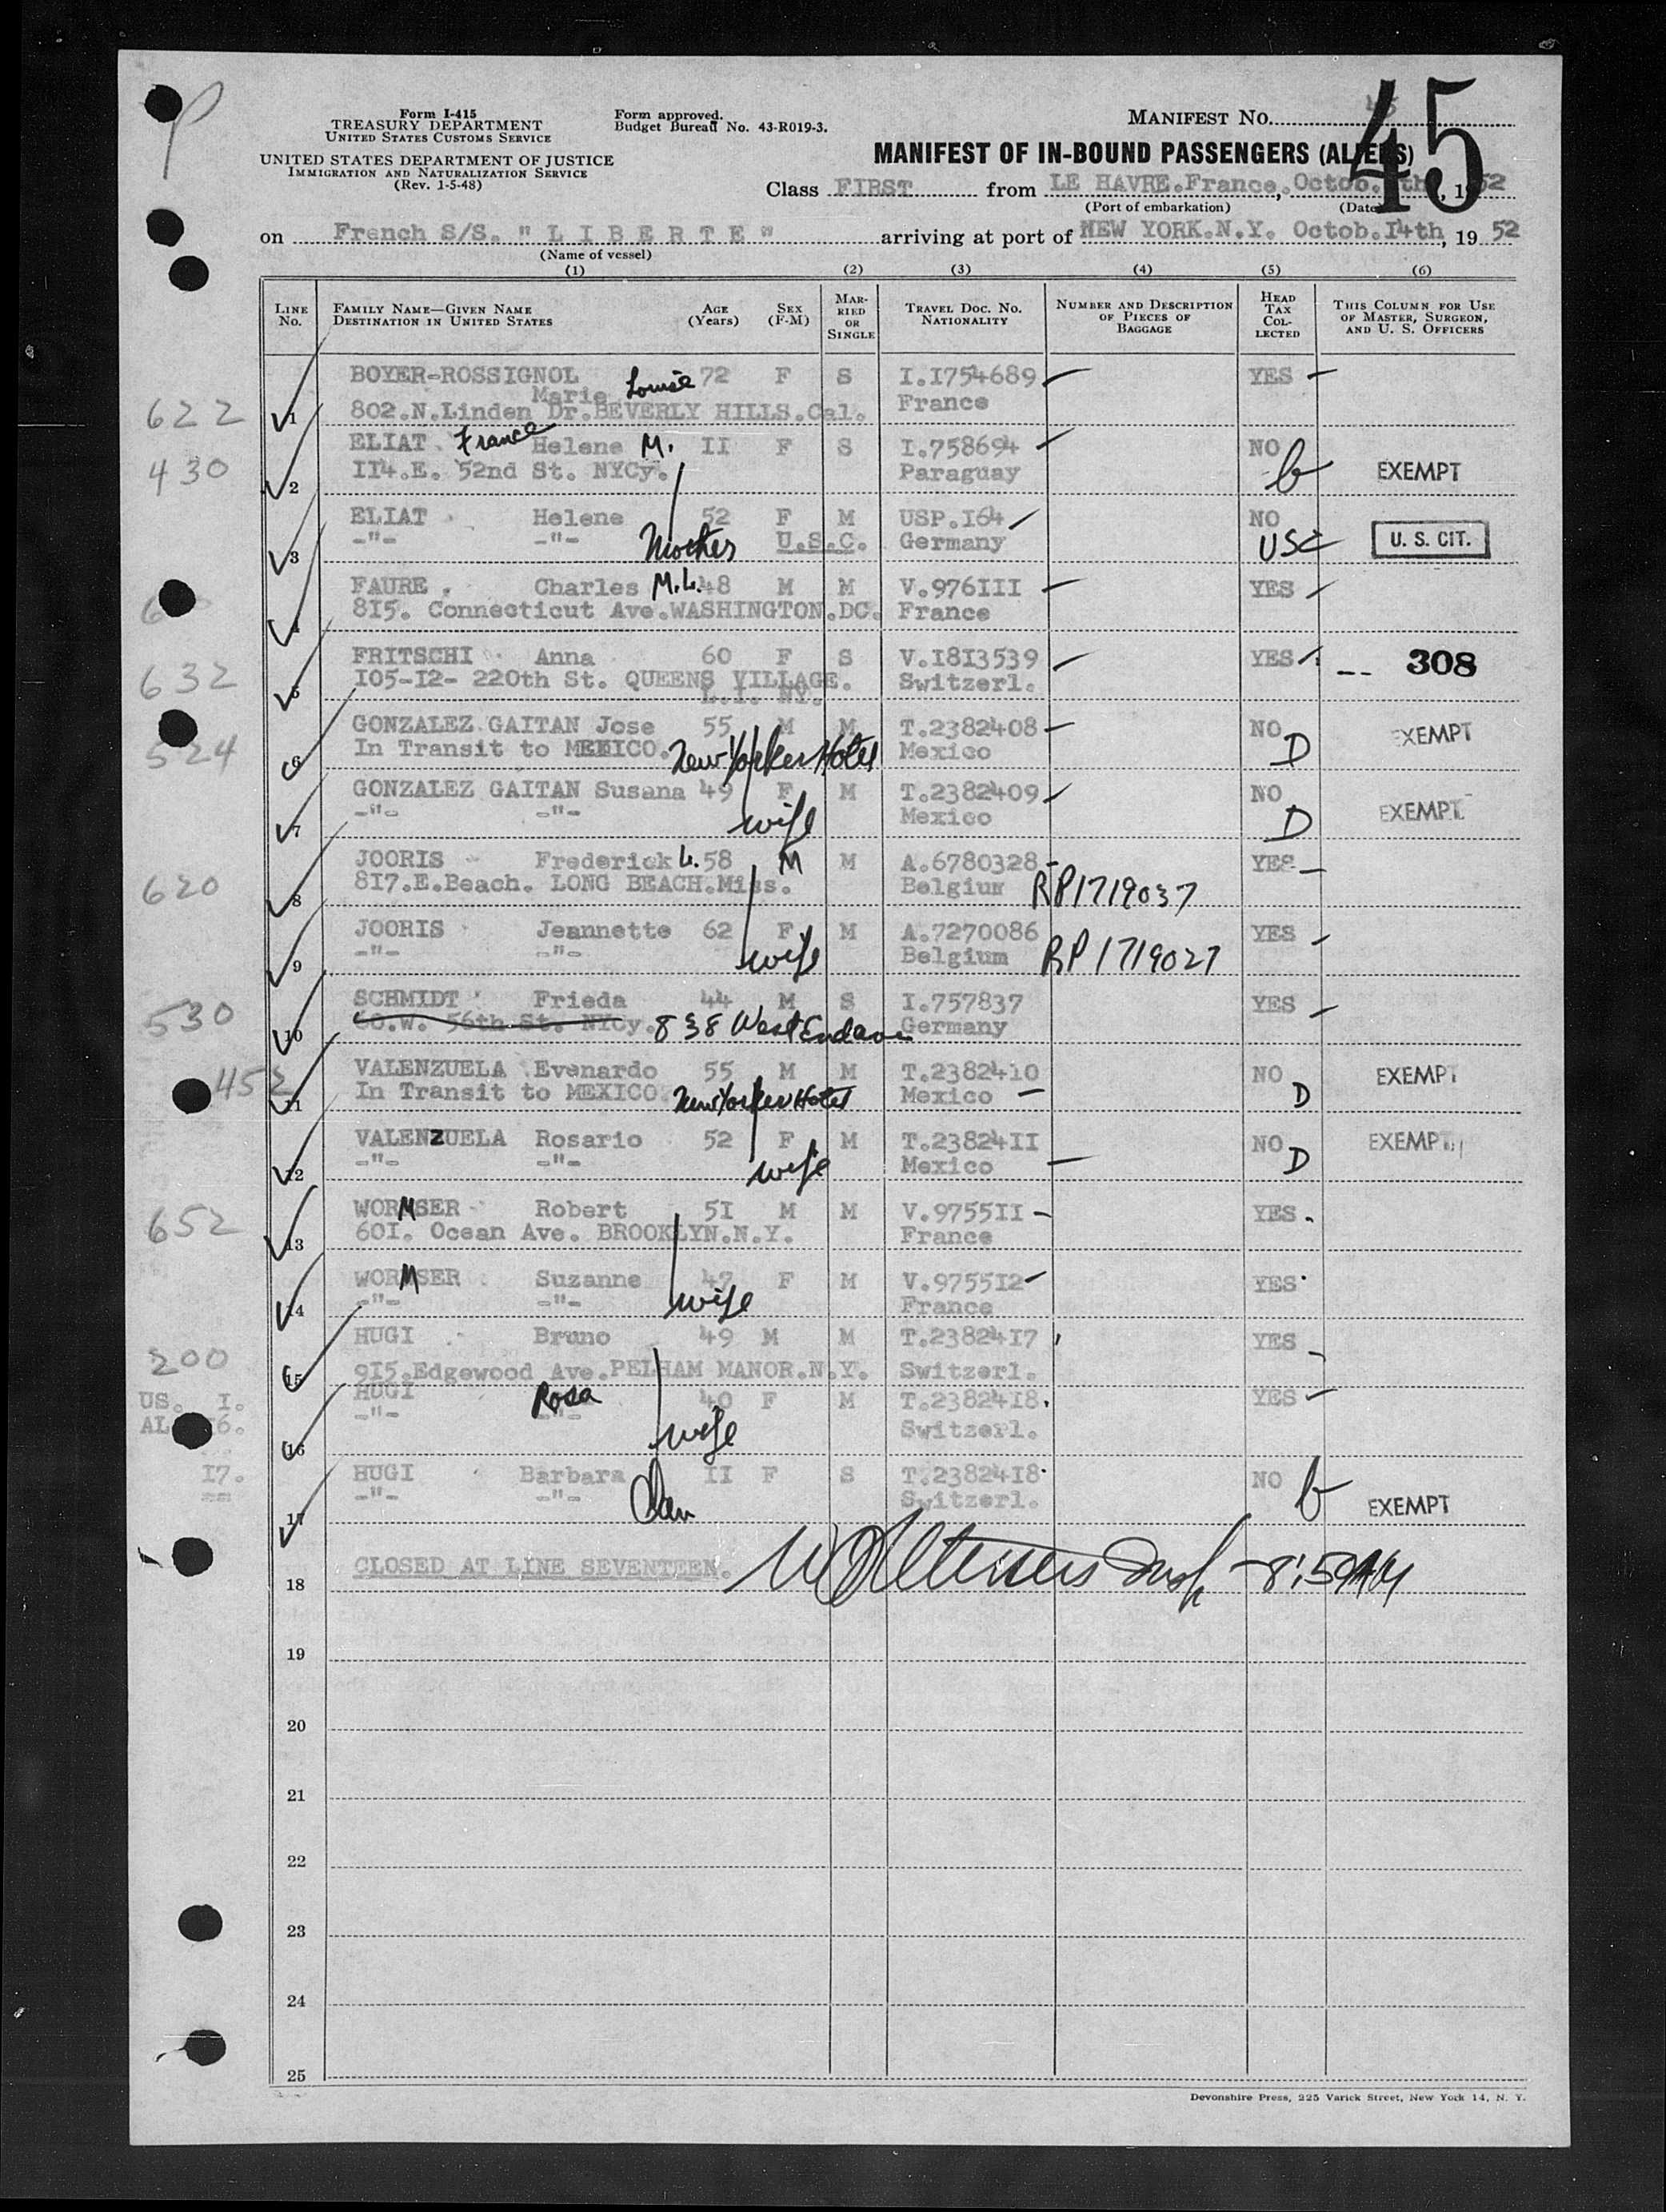 45
Form I-415
TREASURY DEPARTMENT
UNITED STATES CUSTOMS SERVICE
UNITED STATES DEPARTMENT OF JUSTICE
IMMIGRATION AND NATURALIZATION SERVICE
(Rev. 1-5-48)
Form approved.
Budget Bureau No. 43-R019-3.
MANIFEST NO.
MANIFEST OF IN-BOUND PASSENGERS (ALIENS)
Class FIRST from LE HAVRE.France, Octob. th, 1952
(Port of embarkation) (Date)
on French S/S. "LIBERTE" arriving at port of NEW YORK.N.Y. Octob.I4th, 19 52
(Name of vessel)
(1) (2) (3) (4) (5) (6)
LINE No. FAMILY NAME—GIVEN NAME DESTINATION IN UNITED STATES AGE (Years) SEX (F-M) MARRIED OR SINGLE TRAVEL DOC. No. NATIONALITY NUMBER AND DESCRIPTION OF PIECES OF BAGGAGE HEAD TAX COLLECTED THIS COLUMN FOR USE OF MASTER, SURGEON, AND U. S. OFFICERS
BOYER-ROSSIGNOL Marie Louise 72 F S I.I754689 YES
622 1 802.N.Linden Dr.BEVERLY HILLS.Cal. France
ELIAT France Helene M. II F S I.758694 NO
430 2 II4.E. 52nd St. NYCy. Paraguay b EXEMPT
ELIAT Helene 52 F M USP.I64 NO
3 -"- -"- Mother U.S.C. Germany USC U. S. CIT.
FAURE. Charles M.L. 48 M M V.976III YES
4 8I5. Connecticut Ave.WASHINGTON.DC. France
FRITSCHI Anna 60 F S V.I8I3539 YES -- 308
632 5 I05-I2- 220th St. QUEENS VILLAGE. L.I. NY. Switzerl.
GONZALEZ GAITAN Jose 55 M M T.2382408 NO EXEMPT
524 6 In Transit to MEXICO. New Yorker Hotel Mexico D
GONZALEZ GAITAN Susana 49 F M T.2382409 NO
7 -"- -"- wife Mexico D EXEMPT
JOORIS Frederick L. 58 M M A.6780328 YES
620 8 8I7.E.Beach. LONG BEACH.Miss. Belgium RP1719037
JOORIS Jeannette 62 F M A.7270086 YES
9 -"- -"- wife Belgium RP1719027
SCHMIDT Frieda 44 M S I.757837 YES
530 10 60.W. 56th St. NYCy. 838 West End ave Germany
VALENZUELA Evenardo 55 M M T.23824I0 NO EXEMPT
452 11 In Transit to MEXICO New Yorker Hotel Mexico D
VALENZUELA Rosario 52 F M T.23824II NO EXEMPT
12 -"- -"- wife Mexico D
WORMSER Robert 5I M M V.9755II YES.
652 13 60I. Ocean Ave. BROOKLYN.N.Y. France
WORMSER Suzanne 47 F M V.9755I2 YES
14 -"- -"- wife France
HUGI Bruno 49 M M T.23824I7 YES
200 15 9I5.Edgewood Ave.PELHAM MANOR.N.Y. Switzerl.
US. I. HUGI Rosa 40 F M T.23824I8. YES
AL I6. 16 -"- -"- wife Switzerl.
I7. HUGI Barbara II F S T.23824I8 NO
== 17 -"- -"- Dau Switzerl. b EXEMPT
18 CLOSED AT LINE SEVENTEEN. Insp 8:50AM
19
20
21
22
23
24
25
Devonshire Press, 225 Varick Street, New York 14, N. Y.